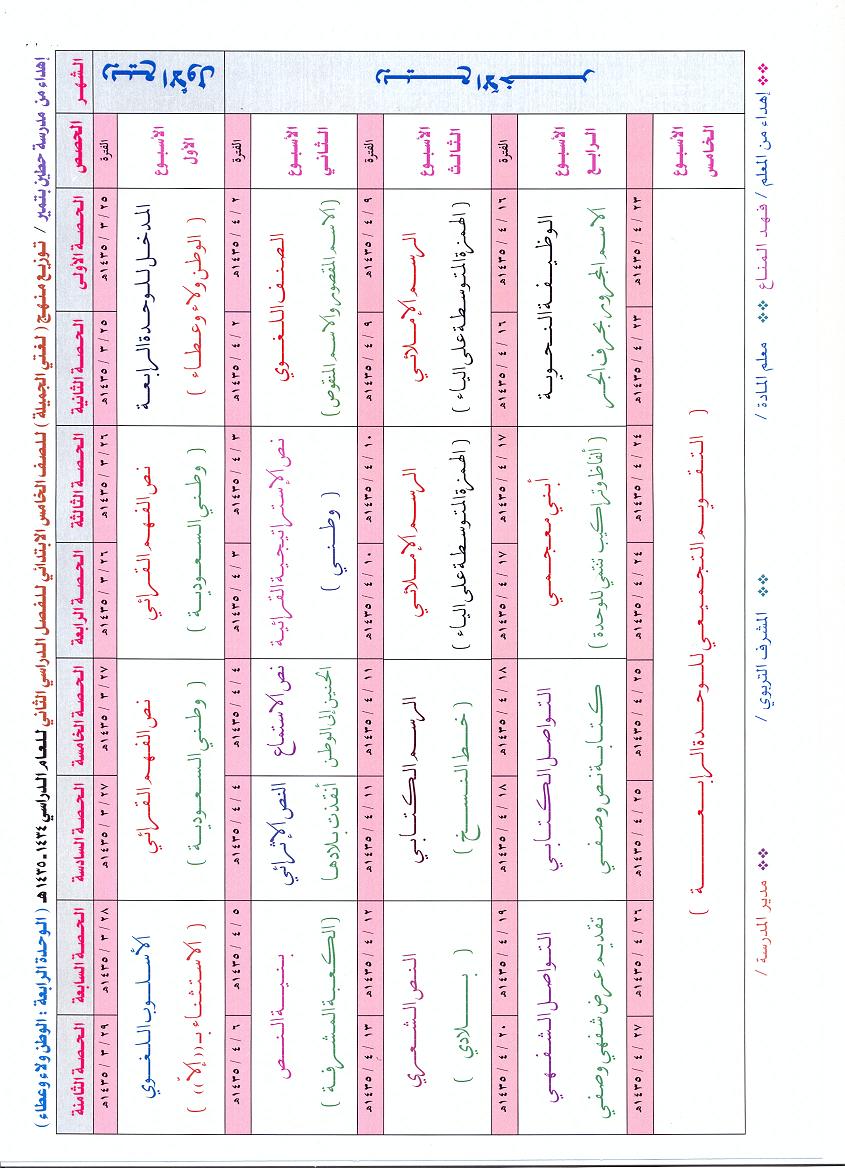 إهداء من مدرسة حطين بتمير / توزيع منهج ( لغتي الجميلة ) للصف الخامس الابتدائي للفصل الدراسي الثاني للعام الدراسي ١٤٣٤ ـ ١٤٣٥ هـ ( الوحدة الرابعة : الوطن ولاء وعطاء )
الشهر
الحصص
الحصة الأولى
الحصة الثانية
الحصة الثالثة
الحصة الرابعة
الحصة الخامسة
الحصة السادسة
الحصة السابعة
الحصة الثامنة
ربيع الأول
الفترة
٢٥ / ٣ / ١٤٣٥هـ
٢٥ / ٣ / ١٤٣٥هـ
٢٦ / ٣ / ١٤٣٥هـ
٢٦ / ٣ / ١٤٣٥هـ
٢٧ / ٣ / ١٤٣٥هـ
٢٧ / ٣ / ١٤٣٥هـ
٢٨ / ٣ / ١٤٣٥هـ
٢٩ / ٣ / ١٤٣٥هـ
الأسبوع الأول
المدخل للوحدة الرابعة
( الوطن ولاء وعطاء )
نص الفهم القرائي
( وطني السعودية )
نص الفهم القرائي
( وطني السعودية )
الأسلوب اللغوي
( الاستثناء بـ (( إلاّ )) )
ربيع الآخر
الفترة
٢ / ٤ / ١٤٣٥هـ
٢ / ٤ / ١٤٣٥هـ
٣ / ٤ / ١٤٣٥هـ
٣ / ٤ / ١٤٣٥هـ
٤ / ٤ / ١٤٣٥هـ
٤ / ٤ / ١٤٣٥هـ
٥ / ٤ / ١٤٣٥هـ
٦ / ٤ / ١٤٣٥هـ
الأسبوع الثاني
الصنف اللغوي
( الاسم المقصور والاسم المنقوص )
نص الإستراتيجية القرائية
( وطني )
نص الاستماع
الحنين إلى الوطن
النص الإثرائي
أنقذت بلادها
بنية النص
( الكعبة المشرفة )
الفترة
٩ / ٤ / ١٤٣٥هـ
٩ / ٤ / ١٤٣٥هـ
١٠ / ٤ / ١٤٣٥هـ
١٠ / ٤ / ١٤٣٥هـ
١١ / ٤ / ١٤٣٥هـ
١١ / ٤ / ١٤٣٥هـ
١٢ / ٤ / ١٤٣٥هـ
١٣ / ٤ / ١٤٣٥هـ
الأسبوع الثالث
الرسم الإملائي
( الهمزة المتوسطة على الياء )
الرسم الإملائي
( الهمزة المتوسطة على الياء )
الرسم الكتابي
( خط النسخ )
النص الشعري
( بلادي )
الفترة
١٦ / ٤ / ١٤٣٥هـ
١٦ / ٤ / ١٤٣٥هـ
١٧ / ٤ / ١٤٣٥هـ
١٧ / ٤ / ١٤٣٥هـ
١٨ / ٤ / ١٤٣٥هـ
١٨ / ٤ / ١٤٣٥هـ
١٩ / ٤ / ١٤٣٥هـ
٢٠ / ٤ / ١٤٣٥هـ
الأسبوع الرابع
الوظيفة النحوية
الاسم المجرور بحرف الجر
أبني معجمي
( ألفاظ وتراكيب تنتمي للوحدة )
التواصل الكتابي
كتابة نص وصفي
التواصل الشفهي
تقديم عرض شفهي وصفي
٢٣ / ٤ / ١٤٣٥هـ
٢٣ / ٤ / ١٤٣٥هـ
٢٤ / ٤ / ١٤٣٥هـ
٢٤ / ٤ / ١٤٣٥هـ
٢٥ / ٤ / ١٤٣٥هـ
٢٥ / ٤ / ١٤٣٥هـ
٢٦ / ٤ / ١٤٣٥هـ
٢٧ / ٤ / ١٤٣٥هـ
الأسبوع الخامس
( التقويم التجميعي للوحدة الرابعة )
إهداء من المعلم / فهد المناع
معلم المادة /
المشرف التربوي /
مدير المدرسة /